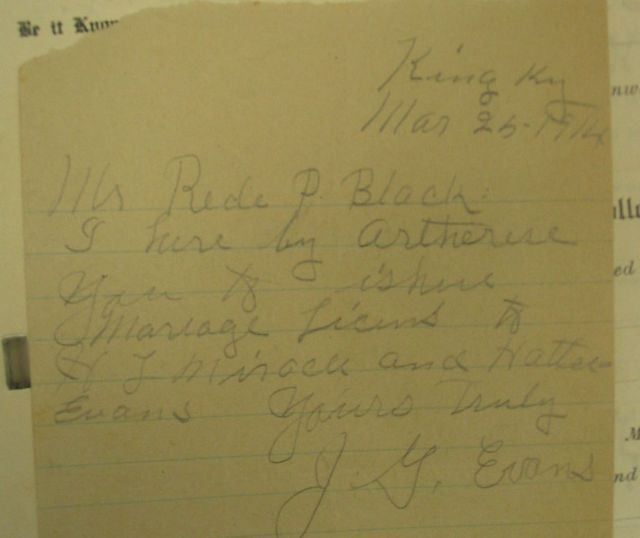 Be it Know
King Ky
Mar 25-1914
Mr Rede P. Black
I here by Artherese
You to ishue
Mareage Licens to
H J Mirack and Hattie
Evans Yours Truly
J. G. Evans